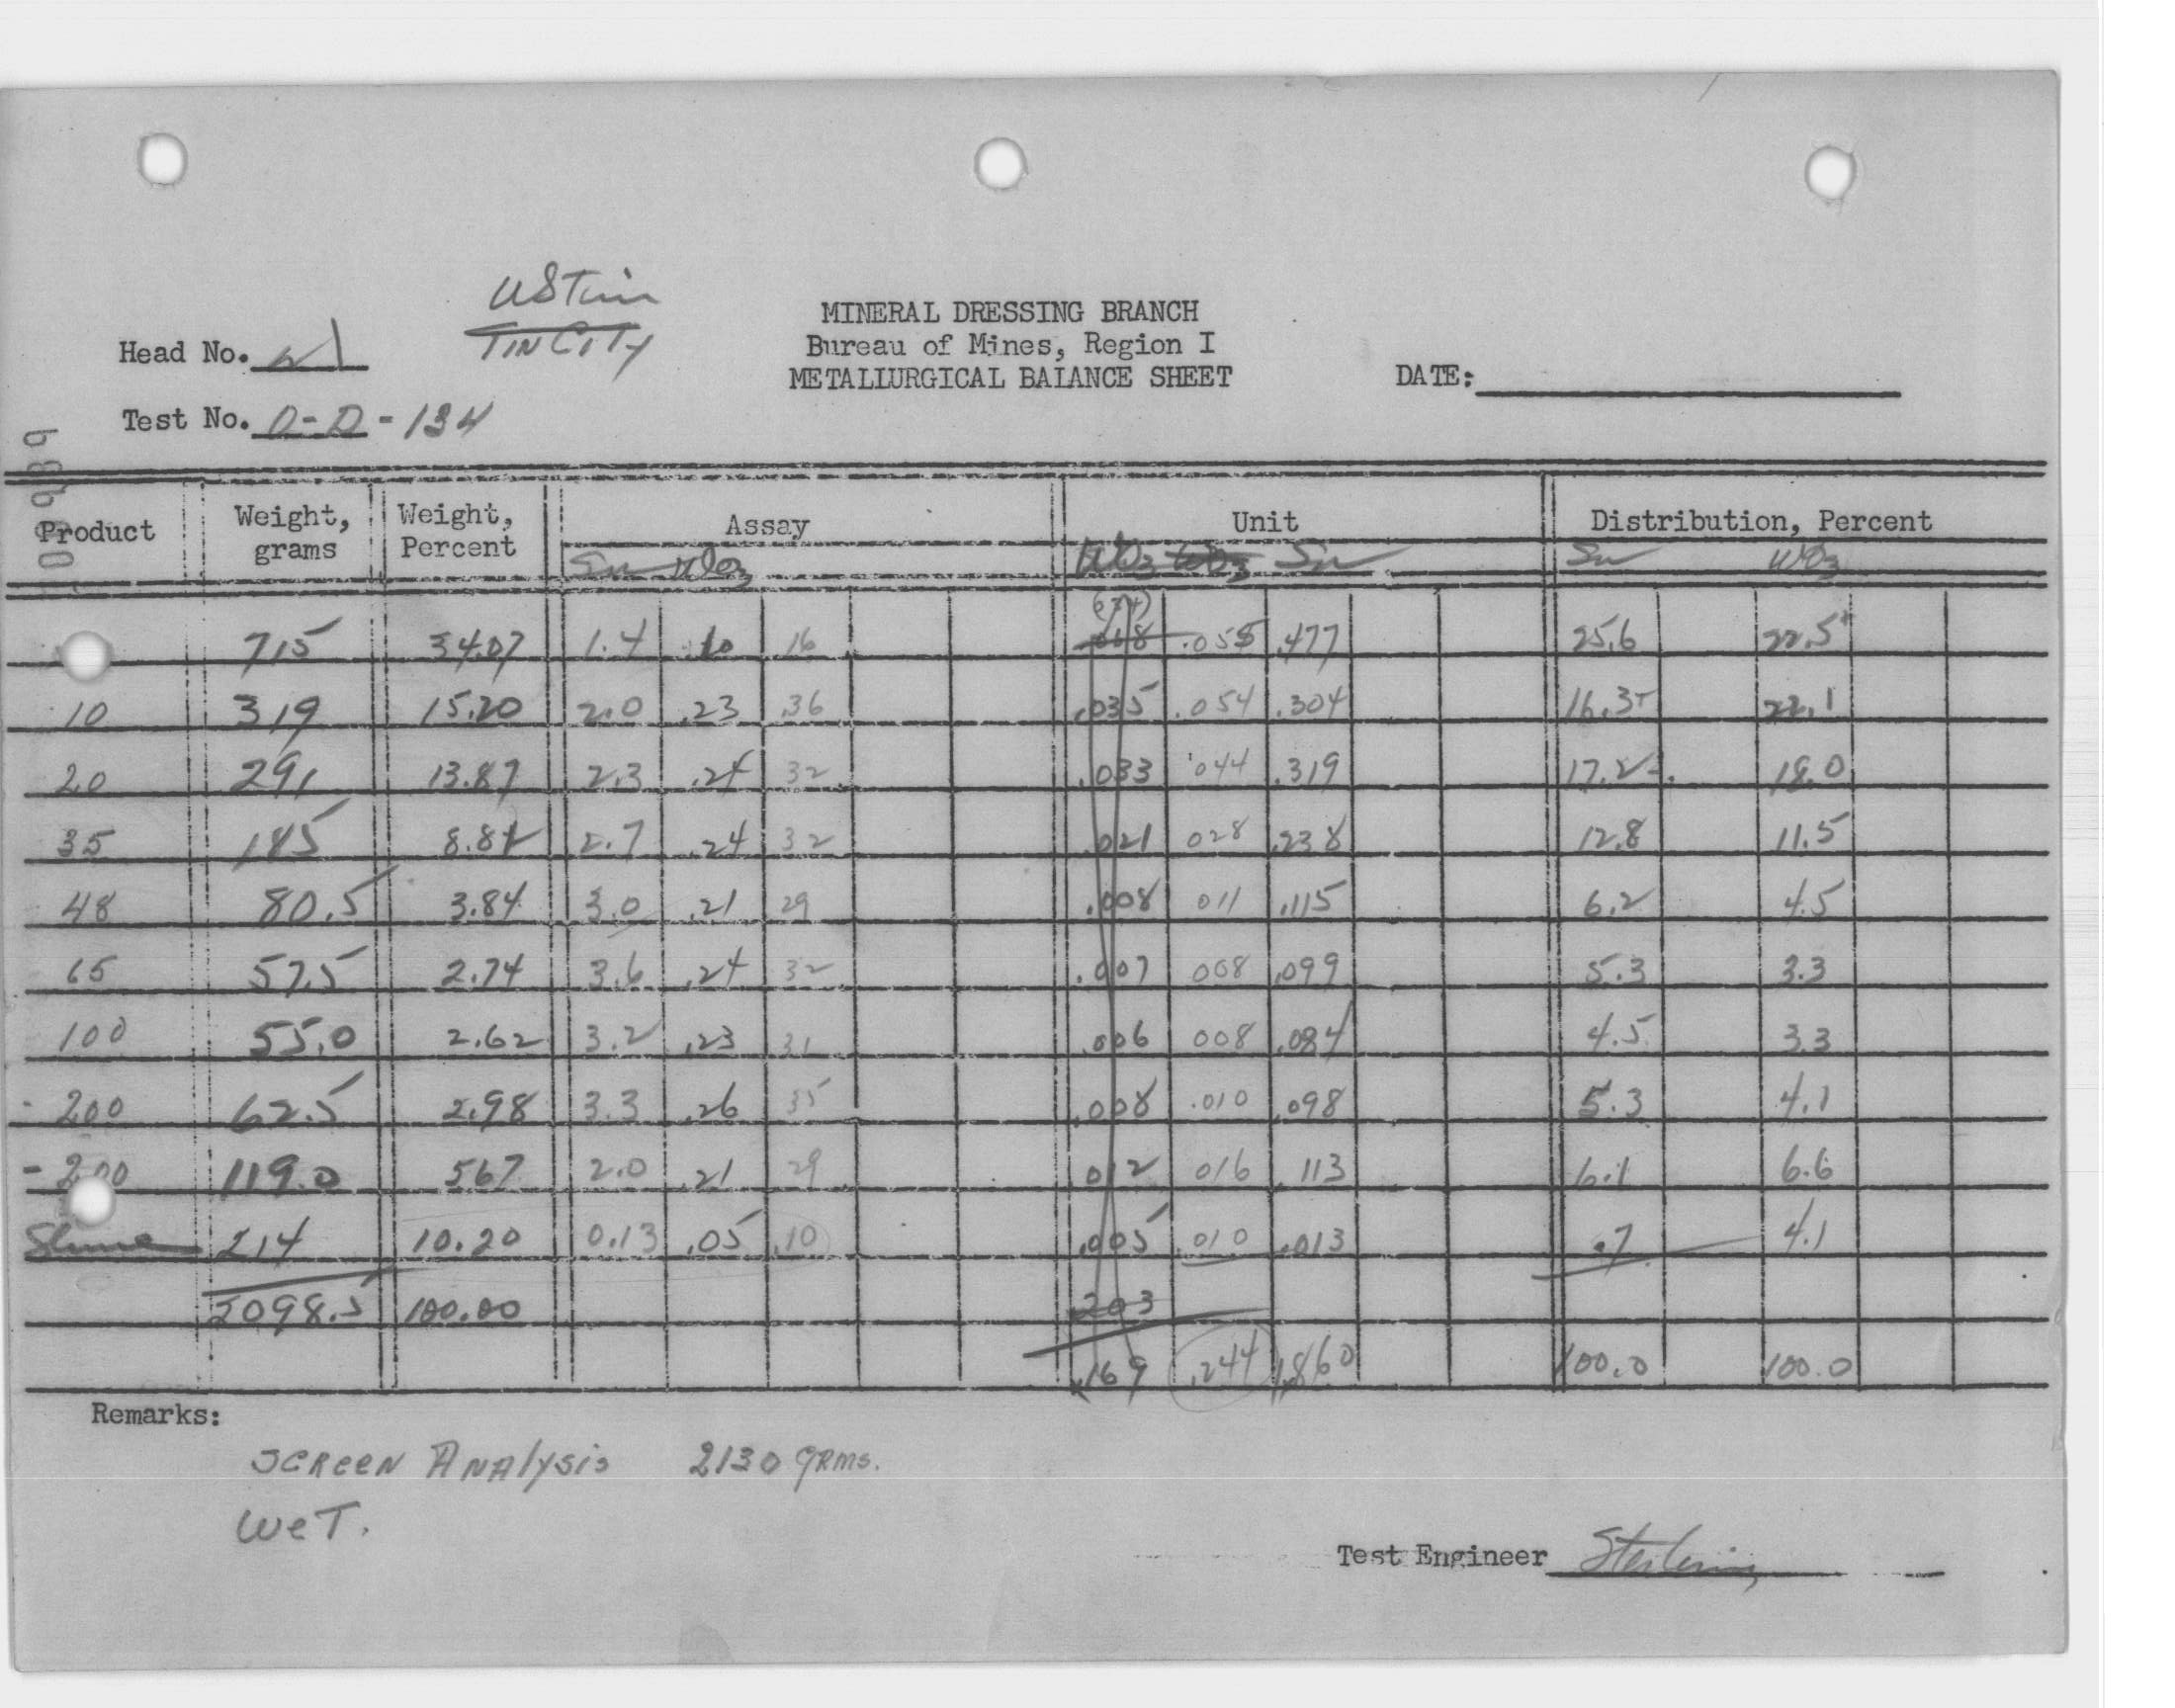 US Tin
TIN CITY
MINERAL DRESSING BRANCH
Bureau of Mines, Region I
METALLURGICAL BALANCE SHEET
Head No. W1
DATE:
Test No. O-D-134
Product Weight, grams Weight, Percent Assay Unit Distribution, Percent
Sn WO3 WO3 WO3 Sn Sn WO3
715 34.07 1.4 .10 16 .055 .477 25.6 22.5+
10 319 15.20 2.0 .23 .36 .035 .054 .304 16.3+ 22.1
20 291 13.87 2.3 .24 32 .033 .044 .319 17.2- 18.0
35 185 8.82 2.7 .24 32 .021 028 .238 12.8 11.5
48 80.5 3.84 3.0 .21 29 .008 011 .115 6.2 4.5
65 57.5 2.74 3.6 .24 32 .007 008 .099 5.3 3.3
100 55.0 2.62 3.2 .23 31 .006 008 .084 4.5 3.3
200 62.5 2.98 3.3 .26 35 .008 .010 .098 5.3 4.1
-200 119.0 5.67 2.0 .21 29 .012 016 .113 6.1 6.6
Slime 214 10.20 0.13 .05 .10 .005 .010 .013 .7 4.1
2098.5 100.00 203
.169 .244 1.860 100.0 100.0
Remarks:
SCREEN ANAlysis 2130 GRMS.
WET.
Test Engineer Sterling